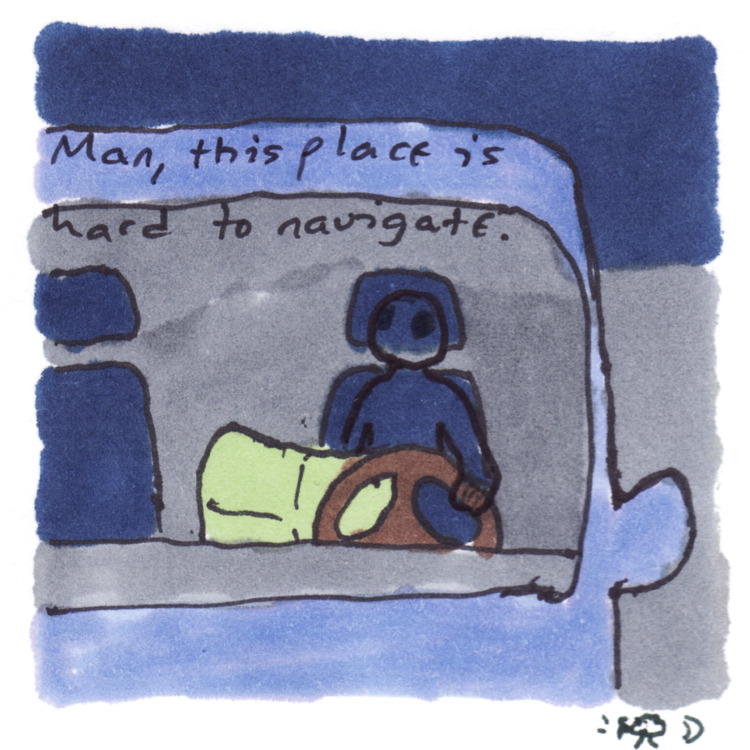 Man, this place is
hard to navigate.